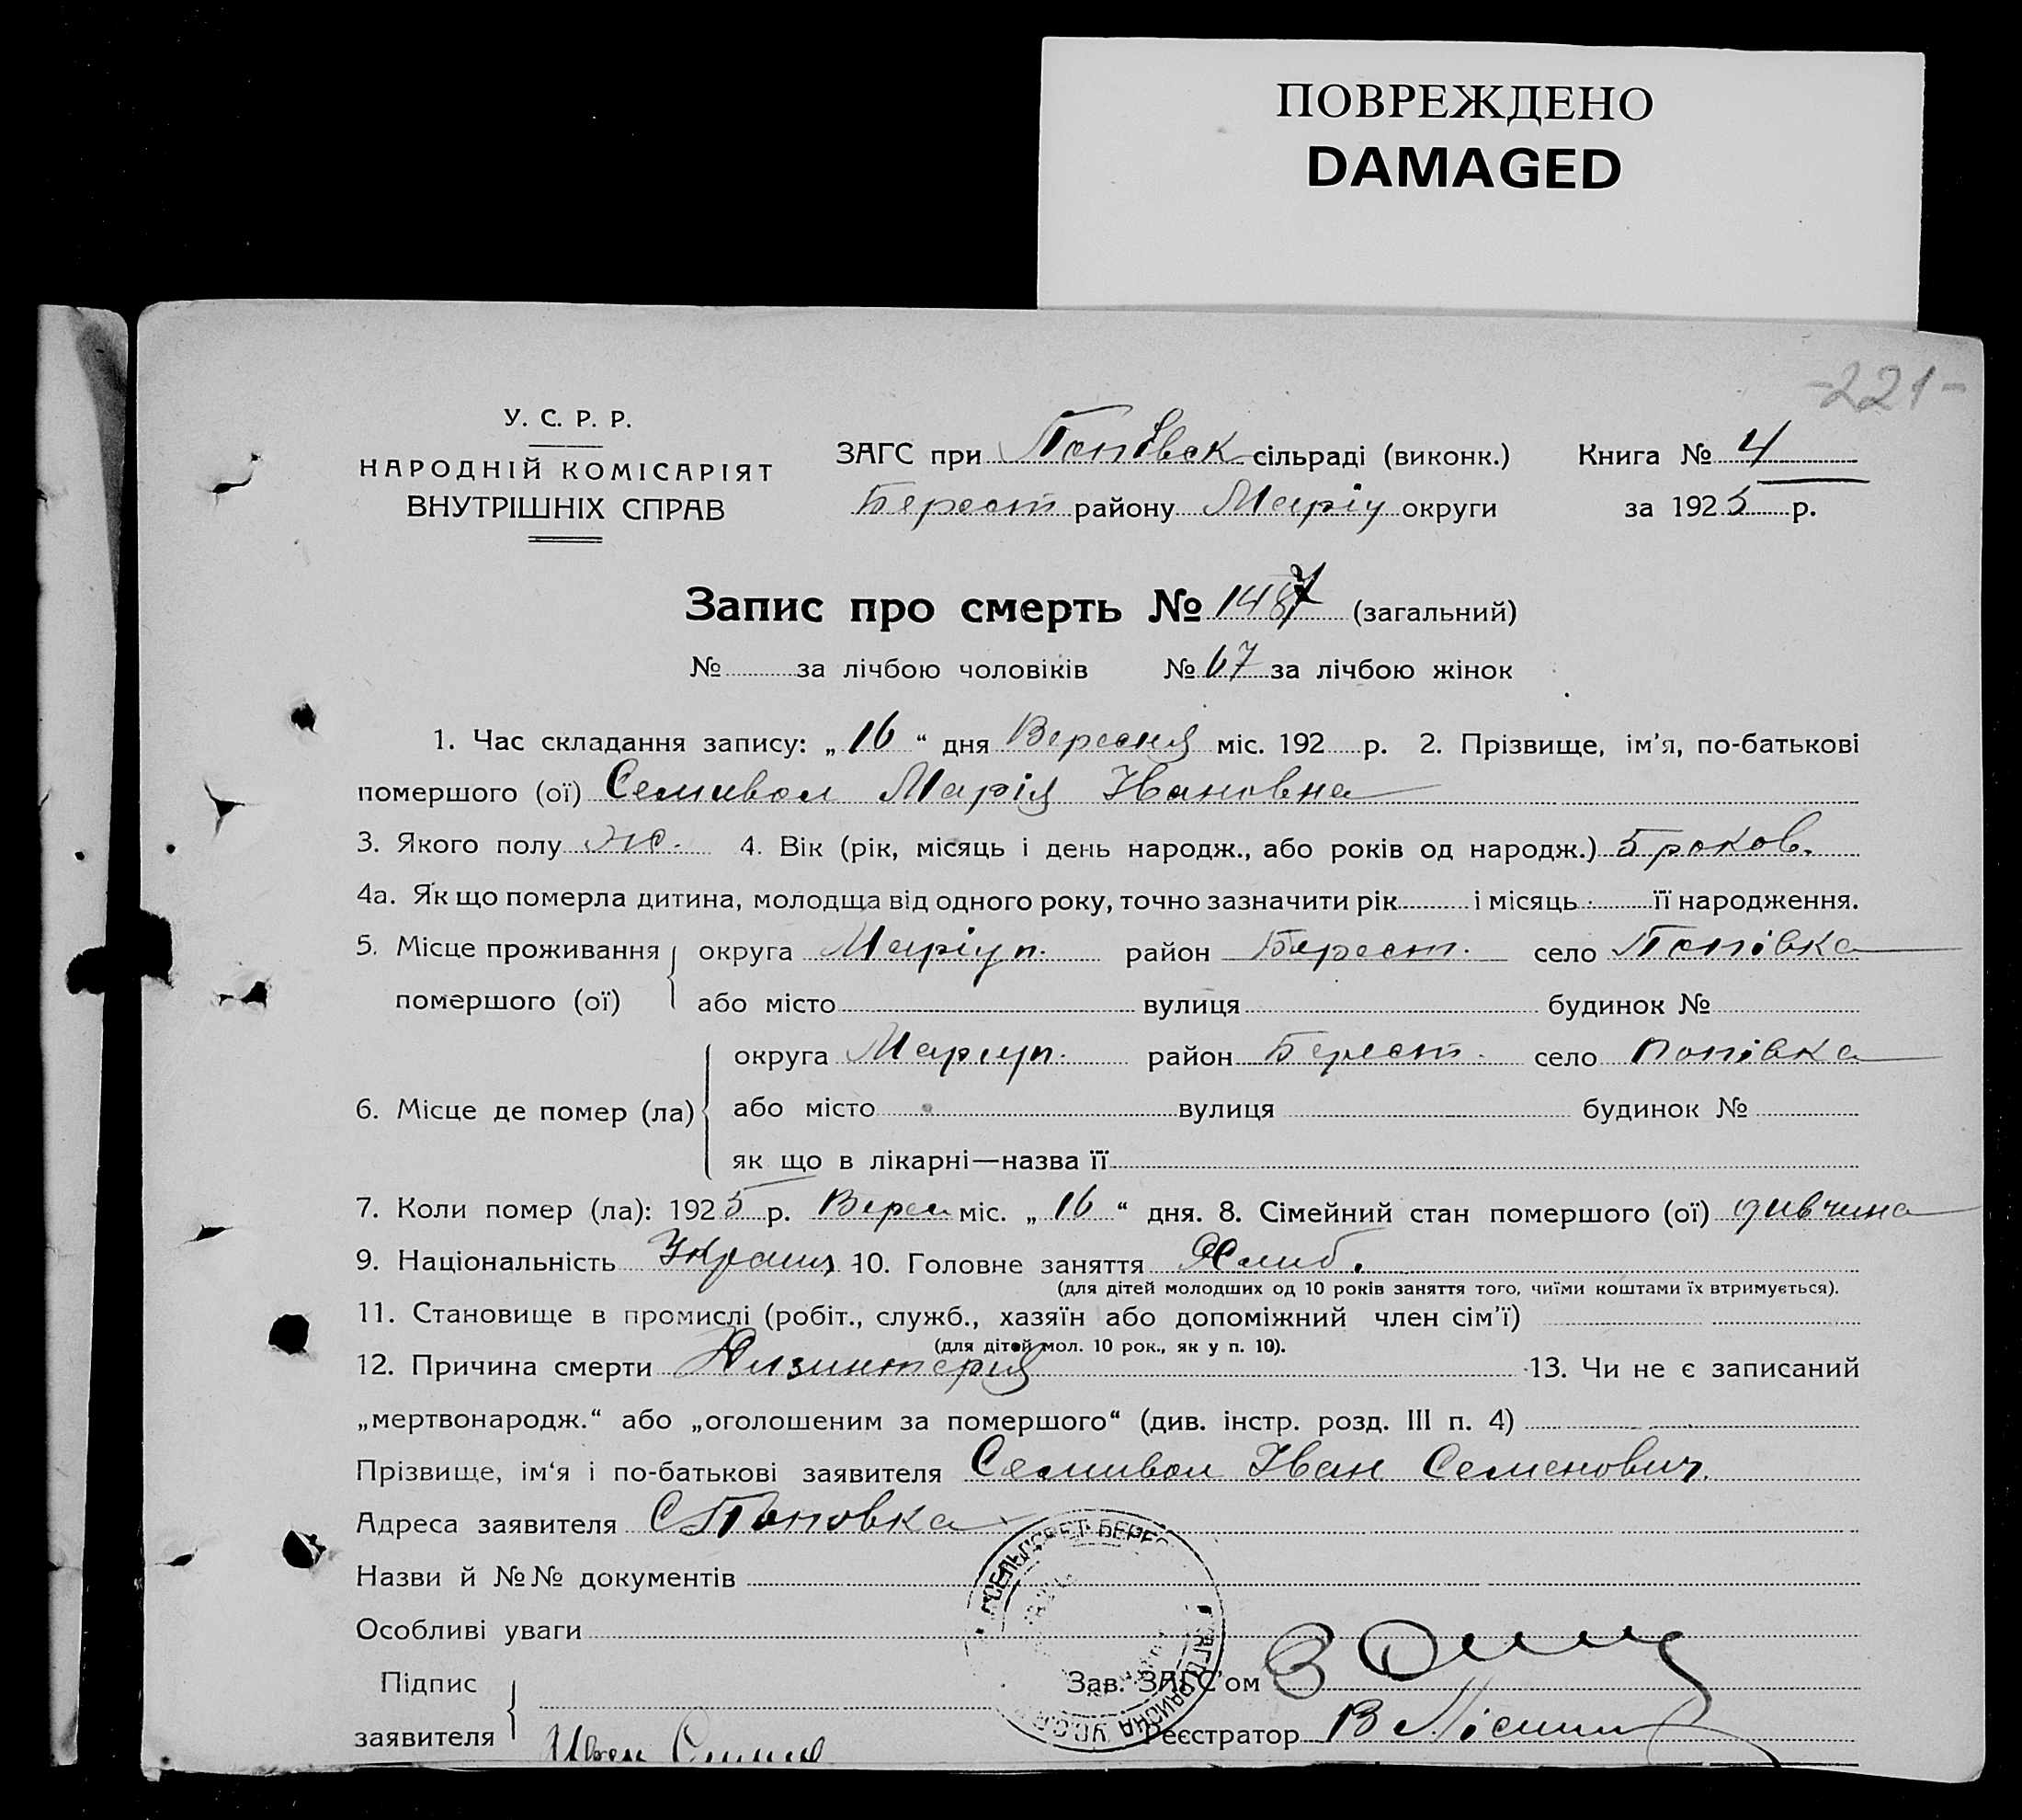 ПОВРЕЖДЕНО
DAMAGED
-221-
У. С. Р. Р.
НАРОДНІЙ КОМІСАРІЯТ
ВНУТРІШНІХ СПРАВ
ЗАГС при Попівск сільраді (виконк.) Книга № 4
Берест району Маріу округи за 1925 р.
Запис про смерть № 1487 (загальний)
№ за лічбою чоловіків № 67 за лічбою жінок
1. Час складання запису: „16“ дня Вересня міс. 192 р. 2. Прізвище, ім'я, по-батькові
помершого (ої) Семивол Марія Івановна
3. Якого полу ж. 4. Вік (рік, місяць і день народж., або років од народж.) 5 роков.
4а. Як що померла дитина, молодща від одного року, точно зазначити рік і місяць її народження.
5. Місце проживання округа Маріуп. район Берест. село Попівка
помершого (ої) або місто вулиця будинок №
округа Маріуп. район Берест. село Попівка
6. Місце де помер (ла) або місто вулиця будинок №
як що в лікарні—назва її
7. Коли помер (ла): 1925 р. Верес міс. „16“ дня. 8. Сімейний стан помершого (ої) дивчина
9. Національність Украин, 10. Головне заняття Хлиб.
(для дітей молодших од 10 років заняття того, чиїми коштами їх втримується).
11. Становище в промислі (робіт., служб., хазяїн або допоміжний член сім'ї)
(для дітей мол. 10 рок., як у п. 10).
12. Причина смерти Дизинтерия 13. Чи не є записаний
„мертвонародж.“ або „оголошеним за помершого“ (див. інстр. розд. III п. 4)
Прізвище, ім'я і по-батькові заявителя Семивол Іван Семенович.
Адреса заявителя С Поповка
Назви й №№ документів
Особливі уваги
Підпис Зав. ЗАГС'ом
заявителя Иван Реєстратор В
СЕЛЬСОВЕТ БЕРЕС
РАЙОНА У.С.С.Р.